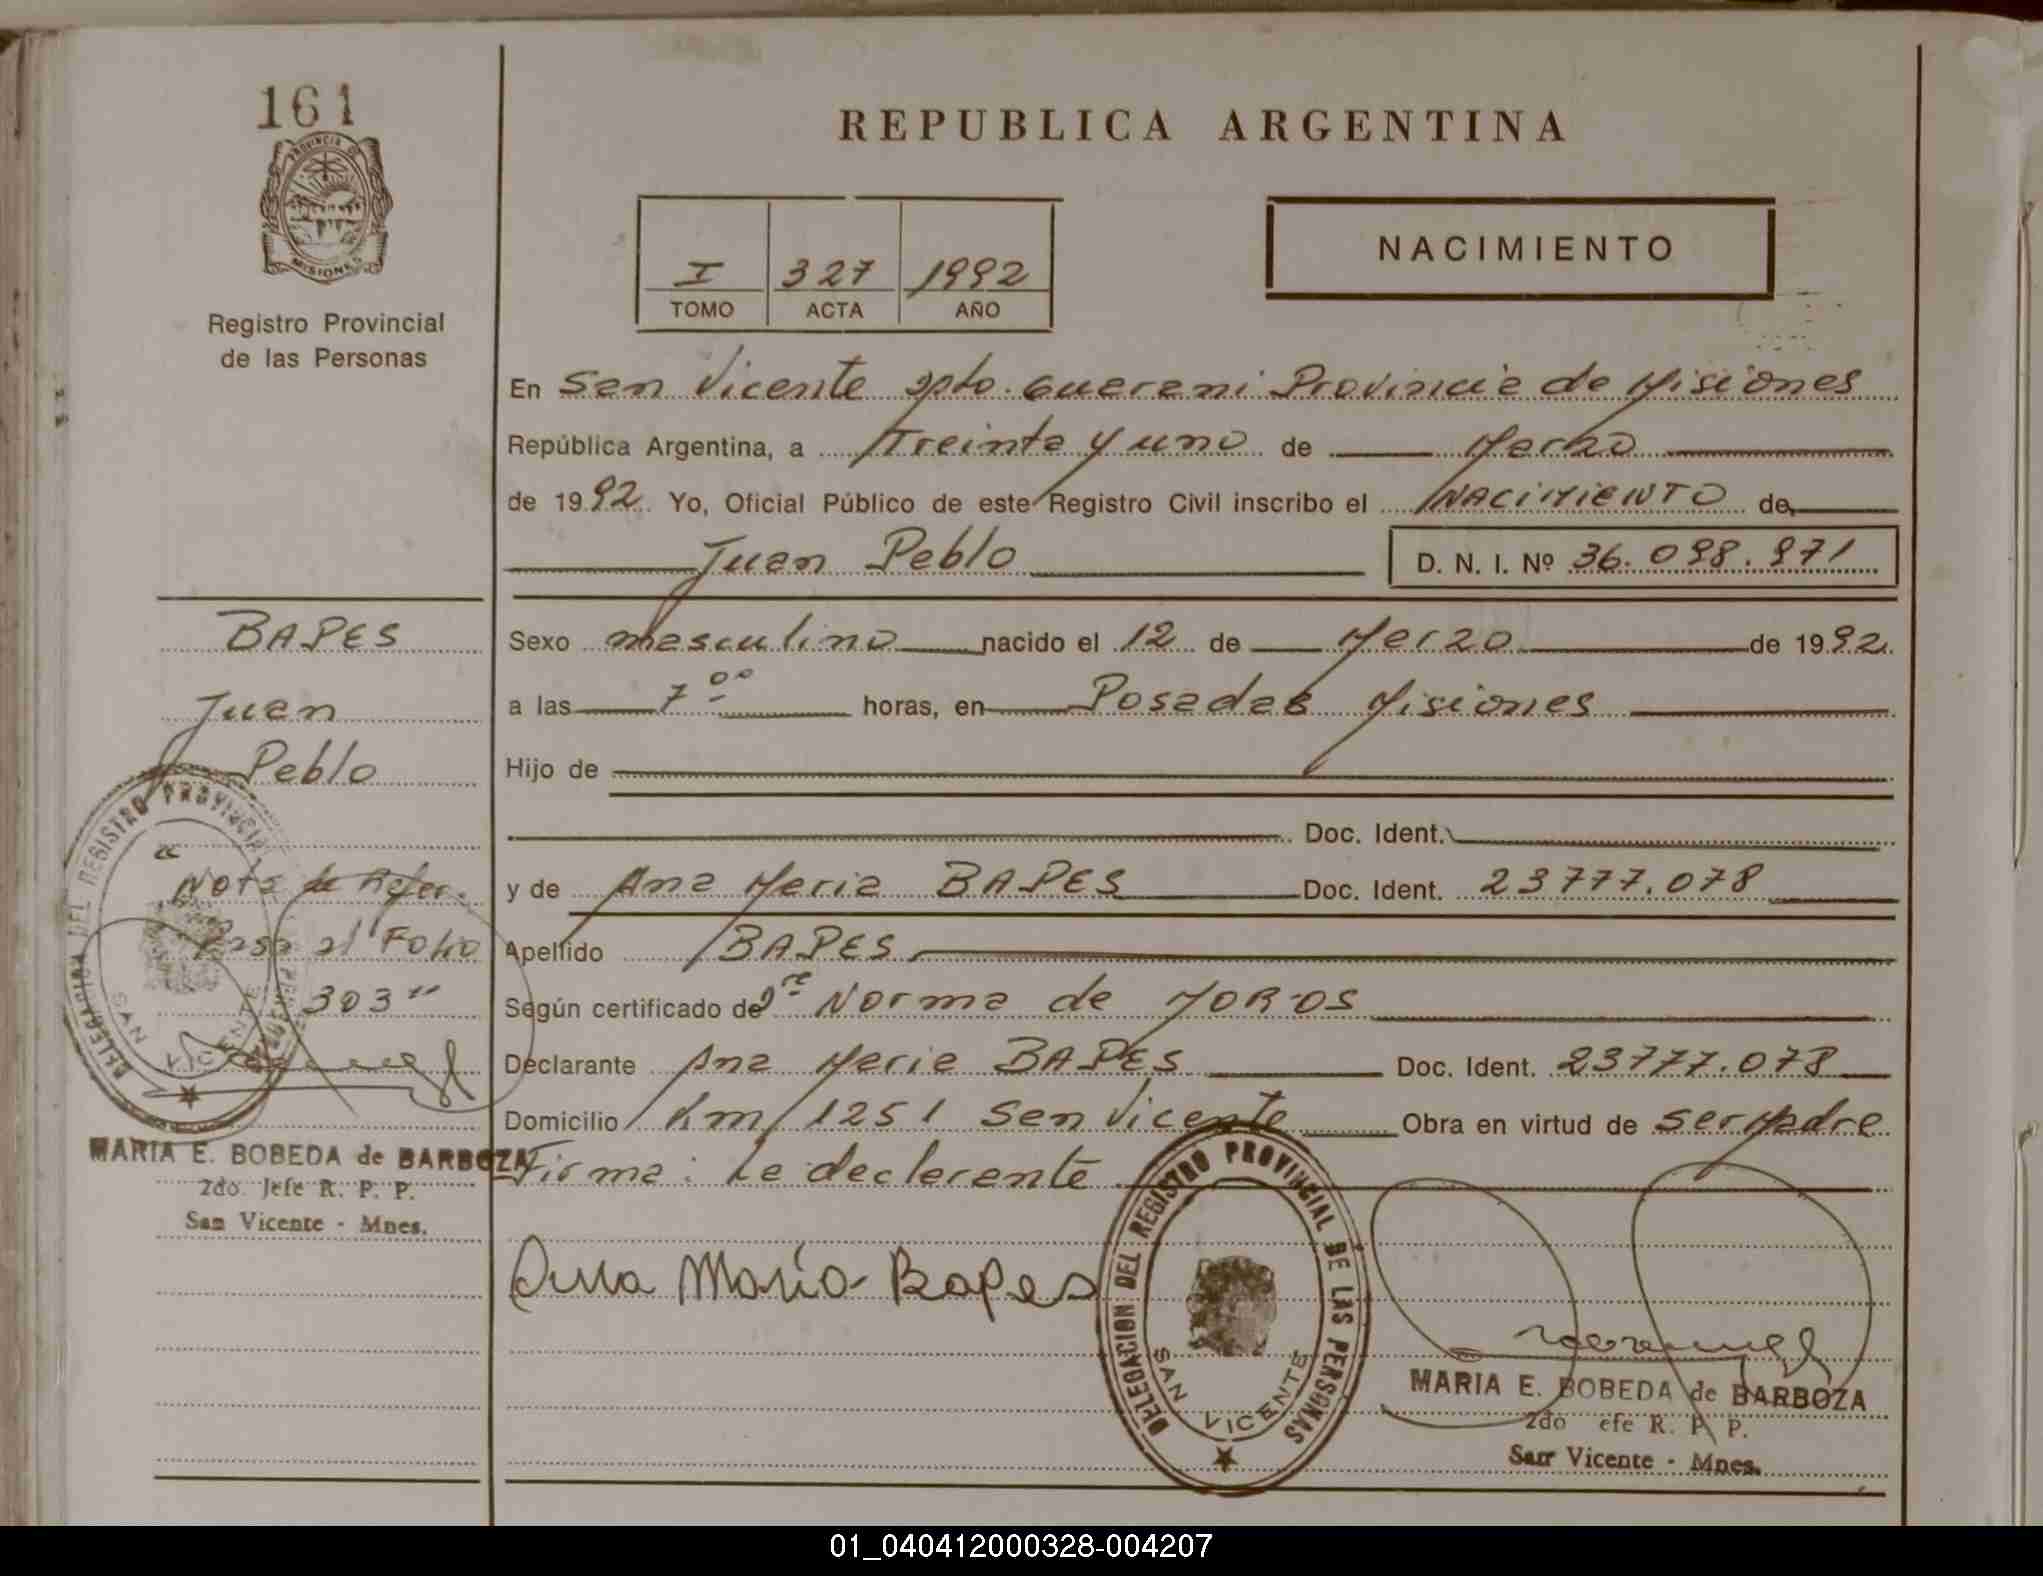 161
PROVINCIA DE
MISIONES
Registro Provincial
de las Personas
BAPES
Juan
Pablo
"Nota de Refer.
Pasa al Folio
303"
DELEGACION DEL REGISTRO PROVINCIAL DE LAS PERSONAS
SAN VICENTE
MARIA E. BOBEDA de BARBOZA
2do. Jefe R. P. P.
San Vicente - Mnes.
REPUBLICA ARGENTINA
I 327 1992
TOMO ACTA AÑO
NACIMIENTO
En San Vicente Dpto. Guarani Provincia de Misiones
República Argentina, a Treinta y uno de Marzo
de 1992. Yo, Oficial Público de este Registro Civil inscribo el NACIMIENTO de
Juan Pablo D. N. I. Nº 36.098.971
Sexo masculino nacido el 12 de Marzo de 1992.
a las 7 00 horas, en Posadas Misiones
Hijo de
Doc. Ident.
y de Ana Maria BAPES Doc. Ident. 23777.078
Apellido BAPES
Según certificado de Dra Norma de MOROS
Declarante Ana Maria BAPES Doc. Ident. 23777.078
Domicilio Km 1251 San Vicente Obra en virtud de ser Madre
Firma: La declarante
Ana María Bapes
DELEGACION DEL REGISTRO PROVINCIAL DE LAS PERSONAS
SAN VICENTE
MARIA E. BOBEDA de BARBOZA
2do efe R. P. P.
San Vicente - Mnes.
01_040412000328-004207